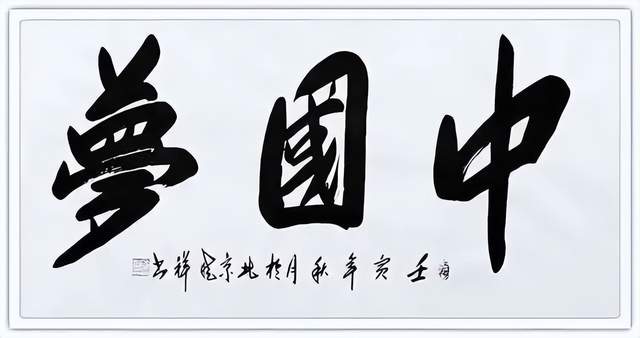 中國夢
壬寅年秋月於北京祥书